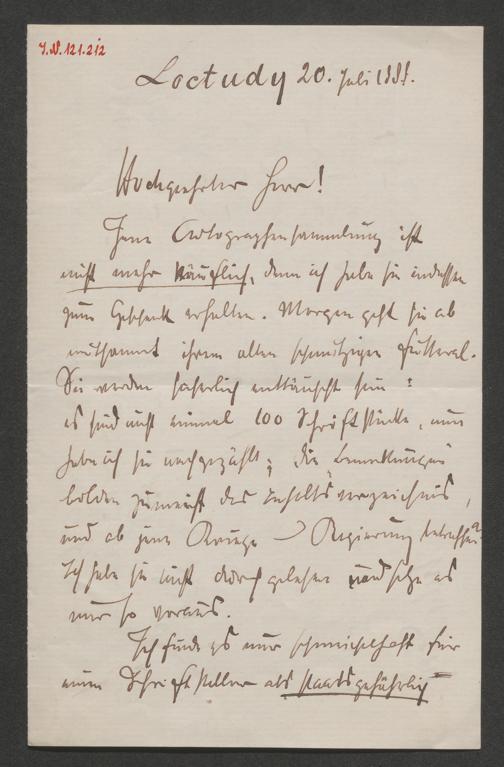 J.N. 121.212
Loctudy 20. Juli 188
Hochgeehrter Herr!
Jene Autographensammlung ist
nicht mehr käuflich, denn ich habe sie indessen
zum Geschenk erhalten. Morgen geht sie ab
mitsammt ihrem alten schmutzigen Futteral.
Sie werden sicherlich enttäuscht sein:
es sind nicht einmal 100 Schriftstücke, nun
habe ich sie nachgezählt; die „Bemerkungen“
bilden zumeist das Inhaltsverzeichnis,
und ob jene Kriege Regierung betreffen?
Ich habe sie nicht durchgelesen und setze es
nur so voraus.
Ich finde es nur schmeichelhaft für
einen Schriftsteller als staatsgefährlich